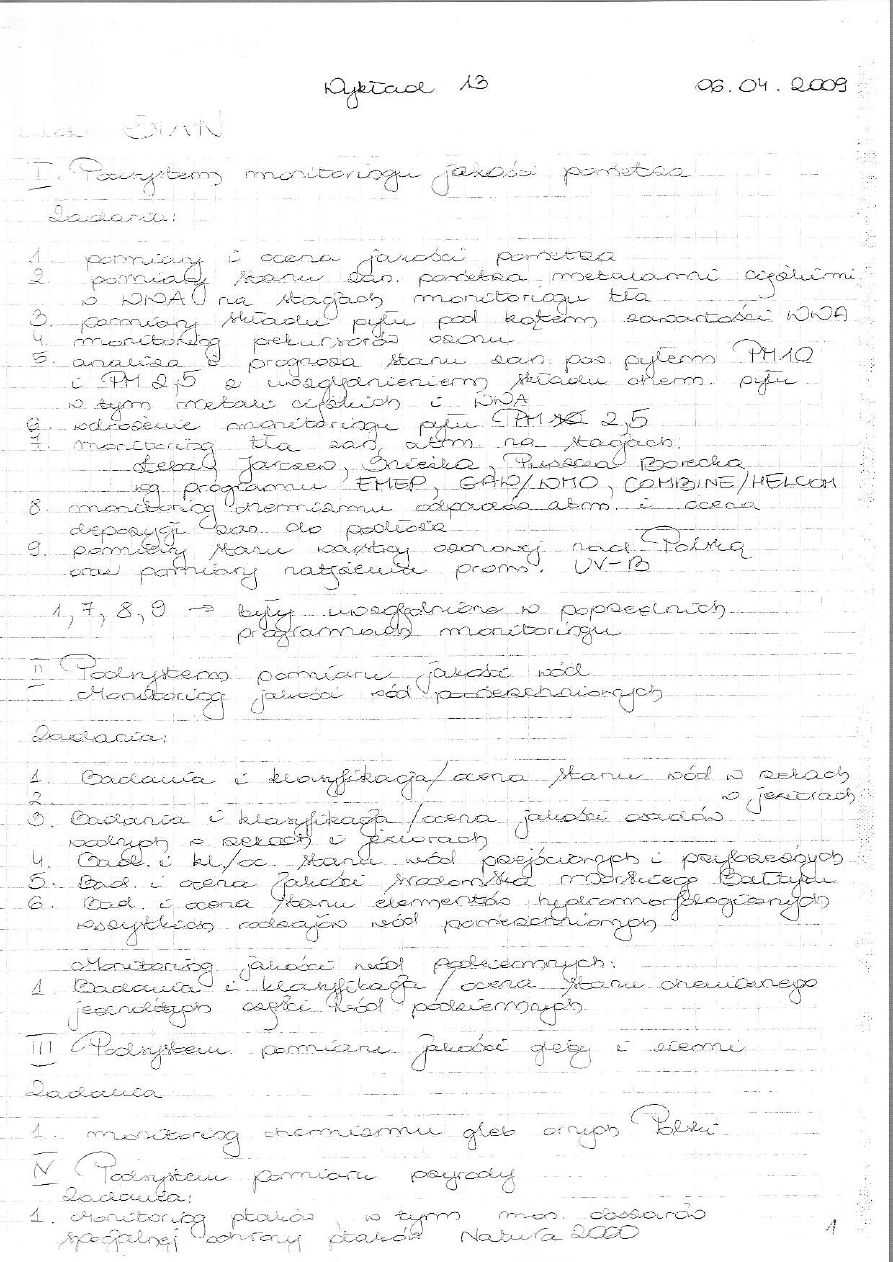 Wykład 13 06.04.2009
I. Podsystem monitoringu jakości powietrza
Zadania:
1. pomiary i ocena jakości powietrza
2. pomiary stanu zan. powietrza metalami ciężkimi
i WWA na stacjach monitoringu tła
3. pomiary składu pyłu pod kątem zawartości WWA
4. monitoring prekursorów ozonu
5. analiza i prognoza stanu zan. pow. pyłem PM10
i PM 2,5 z uwzględnieniem składu chem. pyłu
w tym metali ciężkich i WWA
6. wdrożenie monitoringu pyłu PM 2,5
7. monitoring tła zan. atm. na stacjach:
Łeba, Jarczew, Śnieżka, Puszcza Borecka
wg programu EMEP, GAW/WMO, COMBINE/HELCOM
8. monitoring chemizmu opadów atm. i ocena
depozycji zan. do podłoża
9. pomiary stanu warstwy ozonowej nad Polską
oraz pomiary natężenia prom. UV-B
1, 7, 8, 9 → były uwzględnione w poprzednich
programach monitoringu
II Podsystem pomiaru jakości wód
Monitoring jakości wód powierzchniowych
Zadania:
1. Badania i klasyfikacja/ocena stanu wód w rzekach
2 w jeziorach
3. Badania i klasyfikacja/ocena jakości osadów
wodnych w rzekach i jeziorach
4. Bad. i kl/oc. stanu wód przejściowych i przybrzeżnych
5. Bad. i ocena jakości środowiska morskiego Bałtyku
6. Bad. i ocena stanu elementów hydromorfologicznych
wszystkich rodzajów wód powierzchniowych
Monitoring jakości wód podziemnych:
1 Badania i klasyfikacja/ocena stanu chemicznego
jednolitych części wód podziemnych
III Podsystem pomiaru jakości gleby i ziemi
Zadania
1. monitoring chemizmu gleb ornych Polski
IV Podsystem pomiaru przyrody
Zadania:
1. Monitoring ptaków, w tym mon. obszarów
specjalnej ochrony ptaków Natura 2000
1